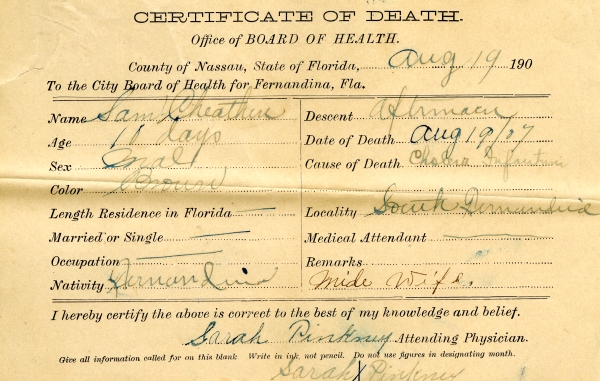 CERTIFICATE OF DEATH.
Office of BOARD OF HEALTH.
County of Nassau, State of Florida, Aug 19 190
To the City Board of Health for Fernandina, Fla.
Name Sam Cheathem
Age 11 days
Sex Mal
Color Brown
Length Residence in Florida —
Married or Single —
Occupation —
Nativity Fernandina
Descent
Date of Death Aug 19/07
Cause of Death Cholera Infantum
Locality South Fernandina
Medical Attendant —
Remarks
Mide Wife.
I hereby certify the above is correct to the best of my knowledge and belief.
Sarah Pinkney Attending Physician.
Give all information called for on this blank Write in ink, not pencil. Do not use figures in designating month.
Sarah X Pinkney